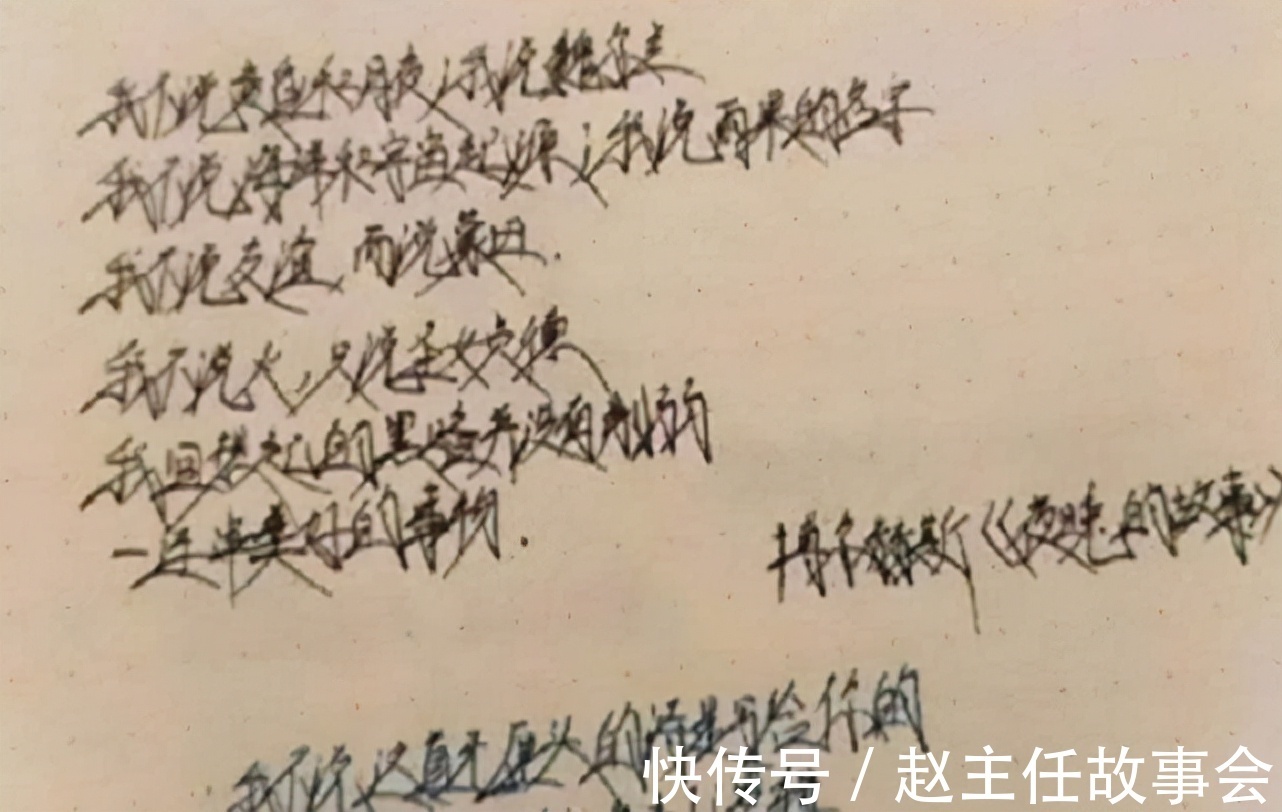 我不说夜色和月夜；我说魏尔兰
我不说海洋和宇宙起源；我说雨果的名字
我不说友谊，而说蒙田.
我不说火，只说圣女贞德
我回想起的黑暗并没有削的
一连串美好的事物.
博尔赫斯《夜晚的故事》
我不说 的诗是写给你的
快传号 / 赵主任故事会